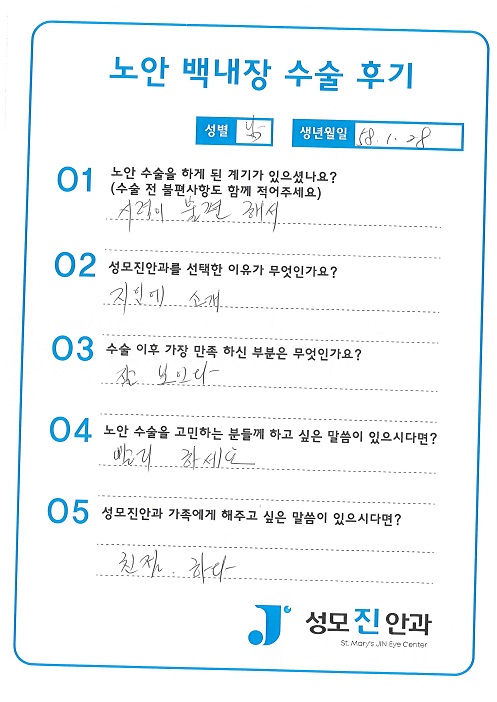 노안 백내장 수술 후기
성별 남 생년월일 58. 1. 28
01 노안 수술을 하게 된 계기가 있으셨나요?
(수술 전 불편사항도 함께 적어주세요)
시령이 불편 해서
02 성모진안과를 선택한 이유가 무엇인가요?
지인에 소개
03 수술 이후 가장 만족 하신 부분은 무엇인가요?
잘 보인다
04 노안 수술을 고민하는 분들께 하고 싶은 말씀이 있으시다면?
빨리 하세요
05 성모진안과 가족에게 해주고 싶은 말씀이 있으시다면?
친절. 하다
성모 진 안과
St. Mary's JIN Eye Center